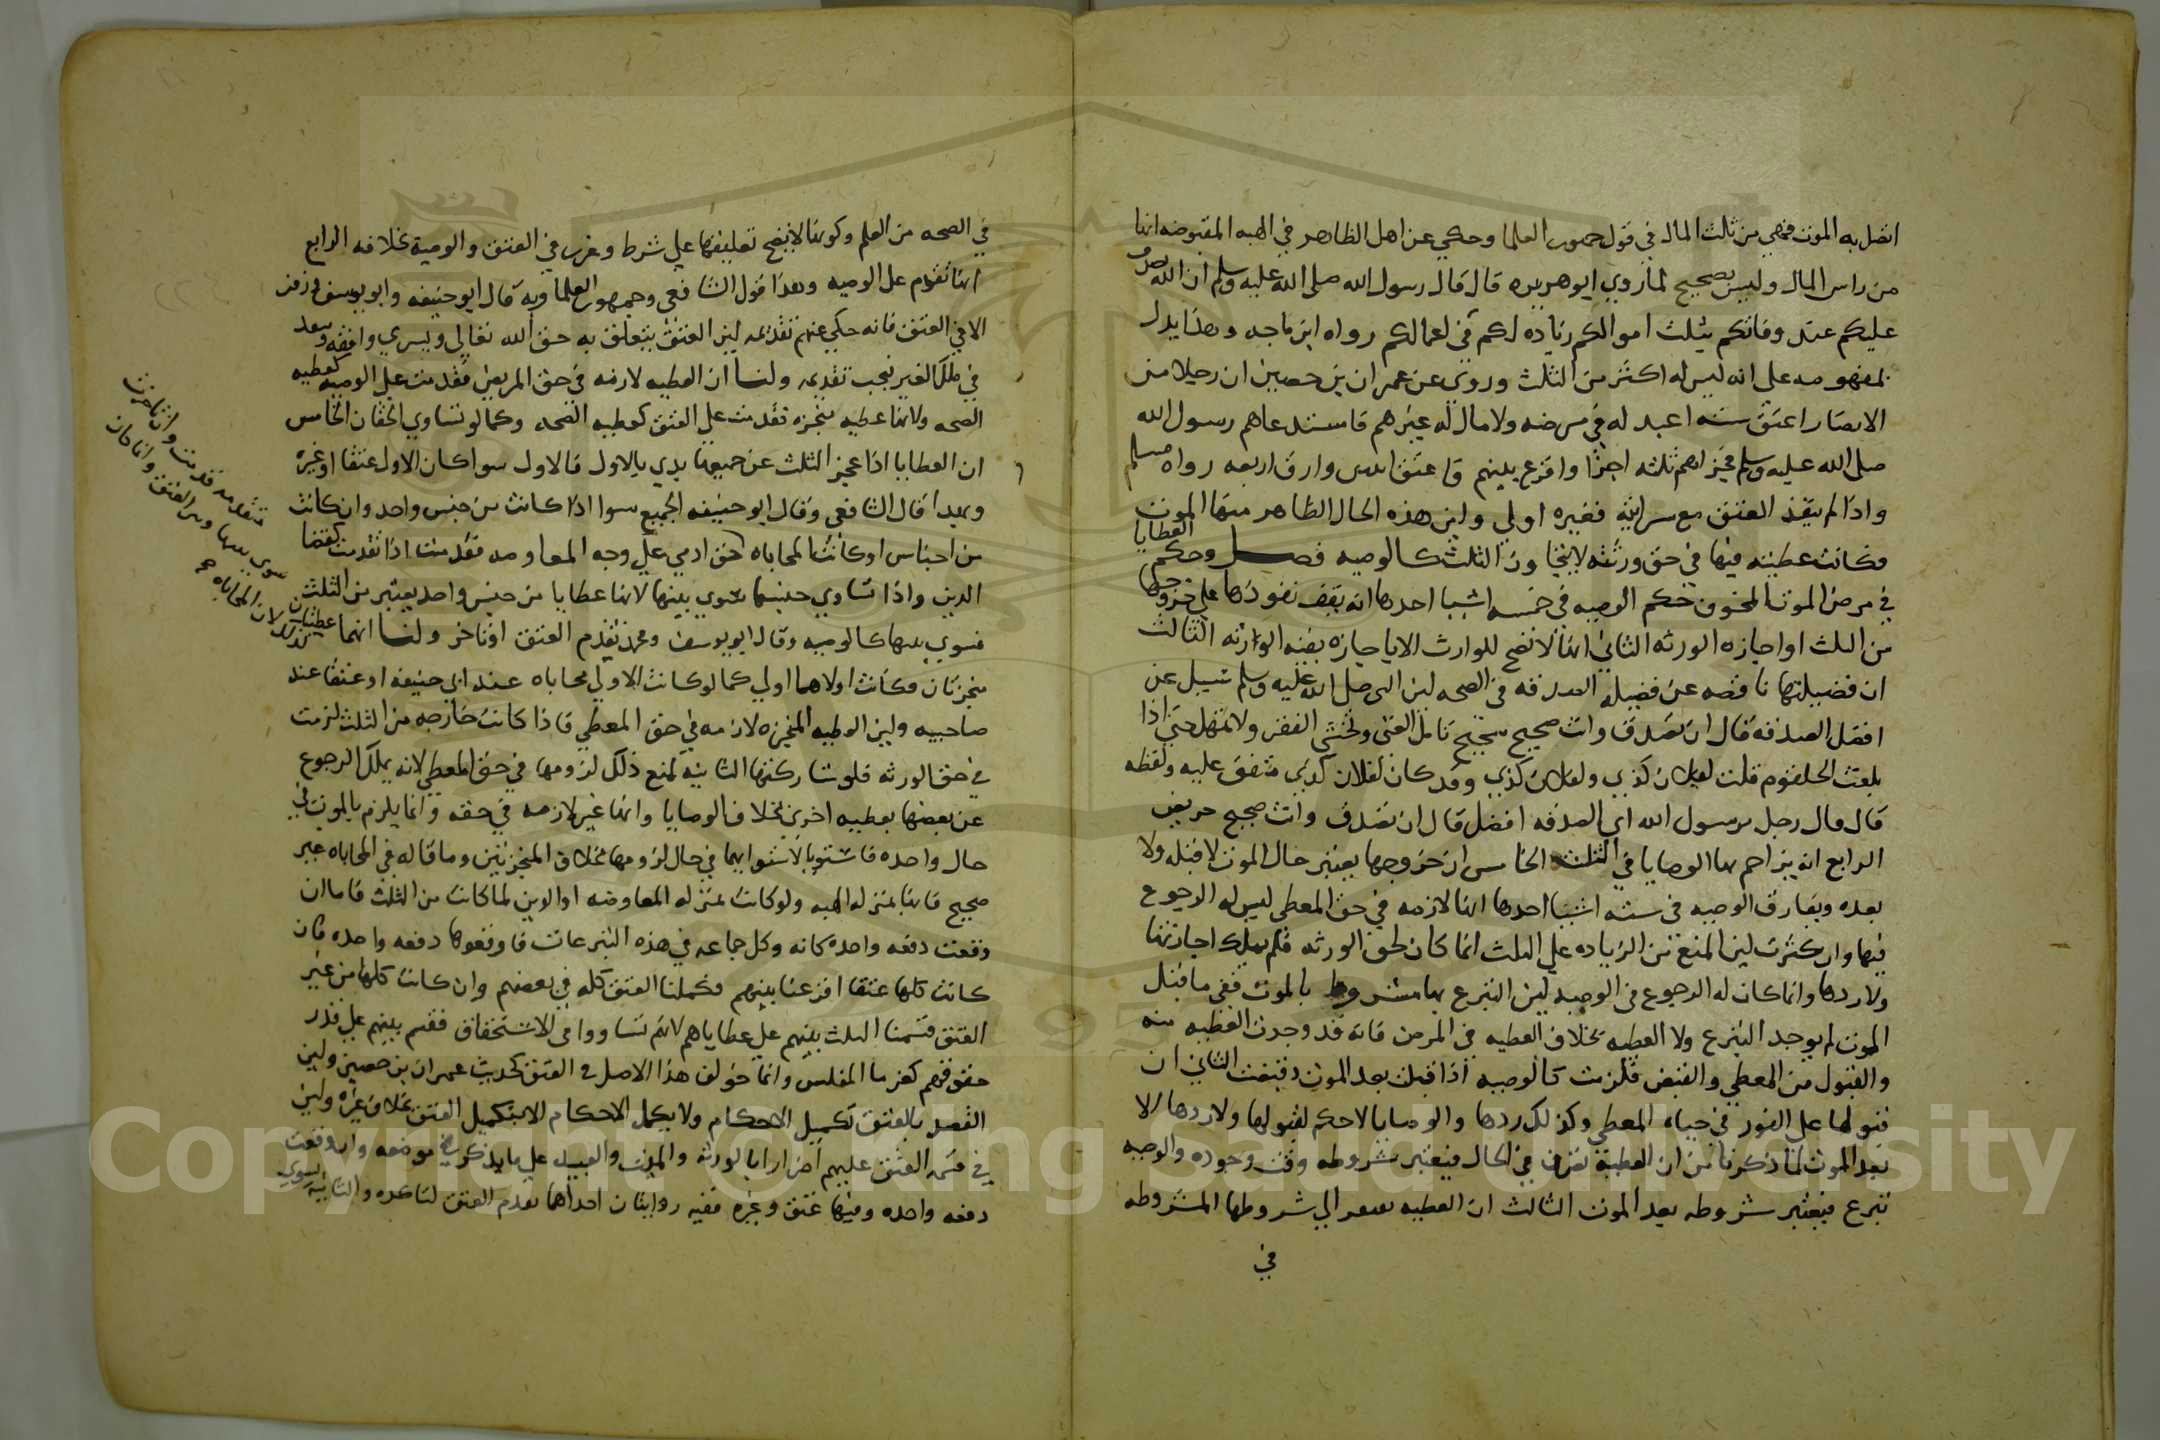 اتصل به الموت فهي من ثلث المال في قول جمهور العلما وحكي عن اهل الظاهر في الهبه المقبوضه انها
من راس المال وليس بصحيح لما روي ابو هريره قال قال رسول الله صلى الله عليه وسلم ان الله تصدق
عليكم عند وفاتكم بثلث اموالكم زياده لكم في اعمالكم رواه ابن ماجه وهذا يدل
بمفهومه على انه ليس له اكثر من الثلث وروي عن عمران بن حصين ان رجلا من
الانصار اعتق سته اعبد له في مرضه ولا مال له غيرهم فاستدعاهم رسول الله
صلى الله عليه وسلم فجزاهم ثلثه اجزا واقرع بينهم فاعتق اثنين وارق اربعه رواه مسلم
واذا لم ينفذ العتق مع سرايته فغيره اولي ولان هذه الحال الظاهر منها الموت
فكانت عطيته فيها في حق ورثته لا يتجاوز الثلث كالوصيه فصل وحكم العطايا
في مرض الموت المخوف حكم الوصيه في خمسه اشيا احدها انه يقف نفوذها علي خروجها
من الثلث او اجازه الورثه الثاني انها لا تصح للوارث الا باجازه بقيه الورثه الثالث
ان فضيلتها ناقصه عن فضيله الصدقه في الصحه لان النبي صلى الله عليه وسلم سيل عن
افضل الصدقه قال ان تصدق وانت صحيح شحيح تامل الغنى وتخشى الفقر ولا تمهل حتى اذا
بلغت الحلقوم قلت لفلان كذي ولفلان كذي وقد كان لفلان كذي متفق عليه ولفظه
قال قال رجل يرسول الله اي الصدقه افضل قال ان تصدق وانت صحيح حريص
الرابع انه يزاحم بها الوصايا في الثلث الخامس ان خروجها يعتبر حال الموت لا قبله ولا
بعده ويفارق الوصيه في سته اشيا احدها انها لازمه في حق المعطي ليس له الرجوع
فيها وان كثرت لان المنع من الزياده علي الثلث انما كان لحق الورثه فلم يملك اجازتها
ولا ردها وانما كان له الرجوع في الوصيه لان التبرع بها مشروط بالموت ففي ما قبل
الموت لم يوجد التبرع ولا العطيه بخلاف العطيه في المرض فانه قد وجدت العطيه منه
والقبول من المعطي والقبض فلزمت كالوصيه اذا قبلت بعد الموت وقبضت الثاني ان
قبولها على الفور في حياه المعطي وكذلك ردها والوصايا لا حكم لقبولها ولا ردها الا
بعد الموت لما ذكرنا من ان العطيه تصرف في الحال فيعتبر شروطه وقت وجوده والوصيه
تبرع فيعتبر شروطه بعد الموت الثالث ان العطيه تفتقر الي شروطها المشروطه
في
في الصحه من العلم وكونها لا يصح تعليقها علي شرط وغرر في العتق والوصية بخلافه الرابع
انها تقدم على الوصيه وهذا قول الشافعي وجمهور العلما وبه قال ابو حنيفه وابو يوسف وزفر
الا في العتق فانه حكي عنهم تقديمه لان العتق يتعلق به حق الله تعالى ويسري واقفه وينفد
في ملك الغير فيجب تقديمه ولنا ان العطيه لازمه في حق المريض فقدمت على الوصيه كعطيه
الصحه ولانها عطيه منجزه فقدمت على العتق كعطيه الصحه وكما لو تساوي الحقان الخامس
ان العطايا اذا عجز الثلث عن جميعها بدي بالاول فالاول سوا كان الاول عتقا او غيره
وبهذا قال الشافعي وقال ابو حنيفه الجميع سوا اذا كانت من جنس واحد وان كانت
من اجناس وكانت المحاباه حق ادمي على وجه المعاوضه فقدمت اذا تقدمت كقضا
الدين واذا تساوي جنسها سوي بينها لانها عطايا من جنس واحد يعتبر من الثلث
فسوي بينها كالوصيه وقال ابو يوسف ومحمد يقدم العتق او تاخر ولنا انهما عطيتان
منجزتان فكانت اولاهما اولي كما لو كانت الاولي محاباه عند ابي حنيفه او عتقا عند
صاحبيه ولان العطيه المنجزه لازمه في حق المعطي فاذا كانت خارجه من الثلث لزمت
في حق الورثه فلو شاركتها الثانيه لمنع ذلك لزومها في حق المعطي لانه يملك الرجوع
عن بعضها بعطيه اخري بخلاف الوصايا وانها غير لازمه في حقه وانما يلزم بالموت في
حال واحده فاستويا لاستوايهما في حال لزومها بخلاف المنجزتين وما قاله في المحاباه غير
صحيح فانها بمنزله الهبه ولو كانت بمنزله المعاوضه او الدين لما كانت من الثلث فاما ان
وقعت دفعه واحده كانه وكل جماعه في هذه التبرعات فاوقعوها دفعه واحده فان
كانت كلها عتقا اقرعنا بينهم فكملنا العتق كله في بعضهم وان كانت كلها من غير
العتق قسمنا الثلث بينهم على عطاياهم لانهم تساووا في الاستحقاق فقسم بينهم على قدر
حقوقهم كغرما المفلس وانما خولف هذا الاصل في العتق لحديث عمران بن حصين ولان
القصد بالعتق تكميل الاحكام ولا يكمل الاحكام الا بتكميل العتق بخلاف غيره ولان
في قسمه العتق عليهم اضرارا بالورثه والميت والعبيد على ما يذكر في موضعه وان وقعت
دفعه واحده وفيها عتق وغيره ففيه روايتان احداهما تقدم العتق لتاكده والثانيه يسوي
متقدمه قدمت وان تاخرت
سوي بينها وبين العتق وانما كان
كذلك لان المحاباه
Copyright © King Saud University
1957